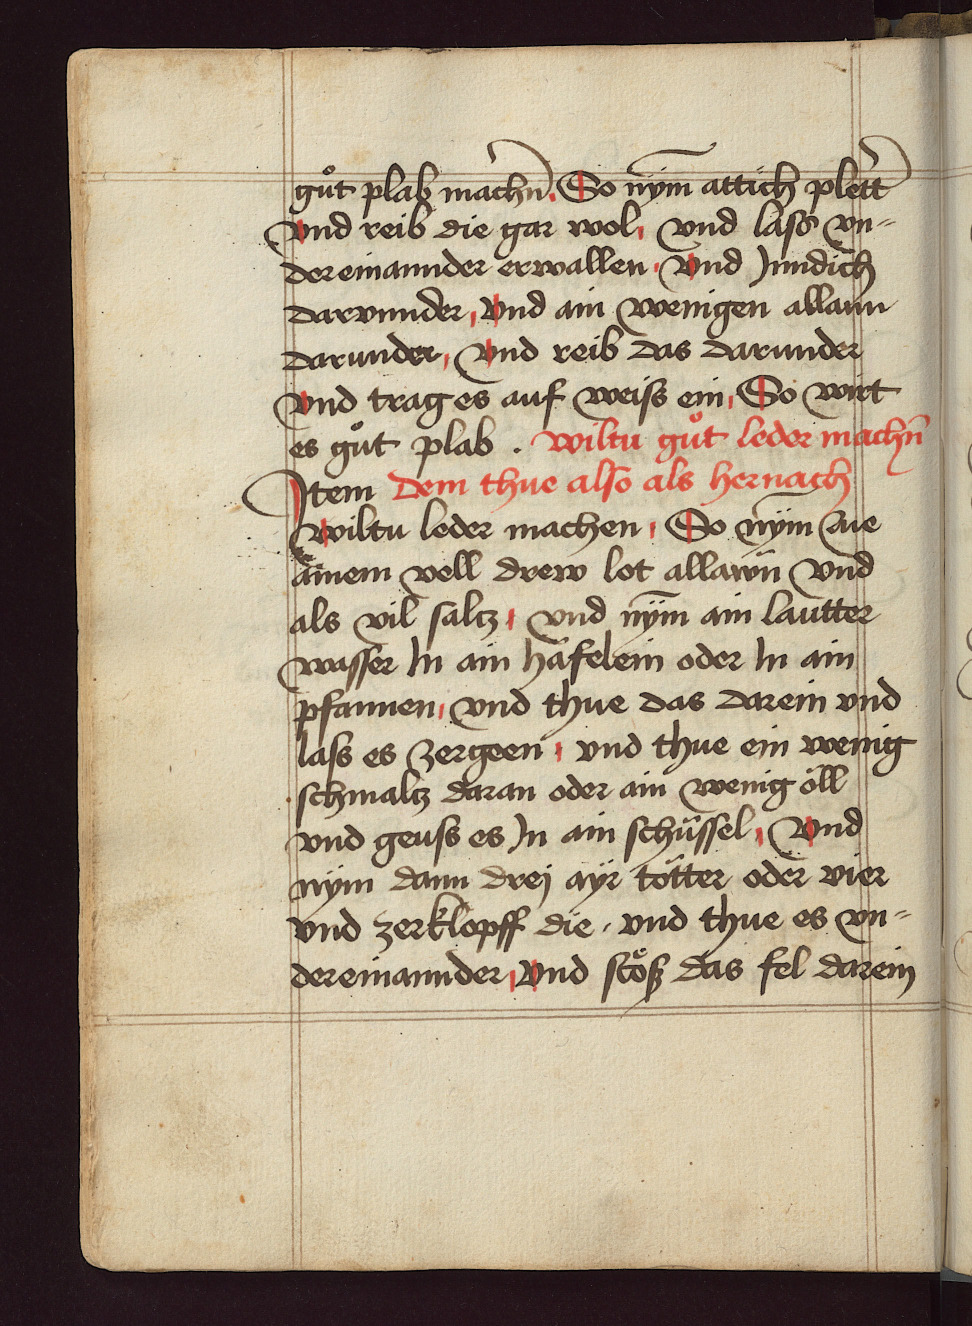 gůt plab machn̄. So nẏm attich plett
vnd reib die gar wol, vnd lass vn=
dereinannder erwallen. Vnd Jnndich
darvnnder, Vnd ain wenigen allaun
darunder, Vnd reib das darunder
vnd trag es auf weiss ein, So wirt
es gůt plab . wiltu gůt leder machn̄
Item dem thue also als hernach
Wiltu leder machen, So nẏm zue
ainem vell drew lot allawn vnd
als vil saltz, vnd nẏm ain lautter
wasser In ain häfelein oder In ain
pfannen, vnd thue das darein vnd
lass es zergeen, vnd thue ein wenig
schmaltz daran oder ain wenig öll
vnd geuss es Jn ain schüssel, Vnd
nẏm dann drej aÿr tötter oder vier
vnd zerklopff die, vnd thue es vn=
dereinannder, Vnd stöß das fel darein